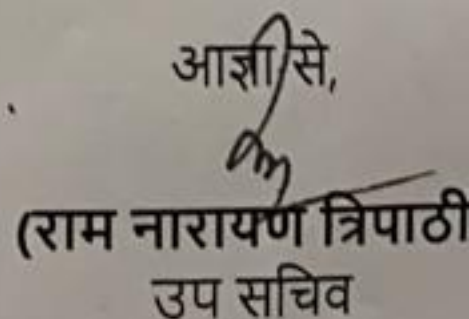 आज्ञा से,
(राम नारायण त्रिपाठी
उप सचिव